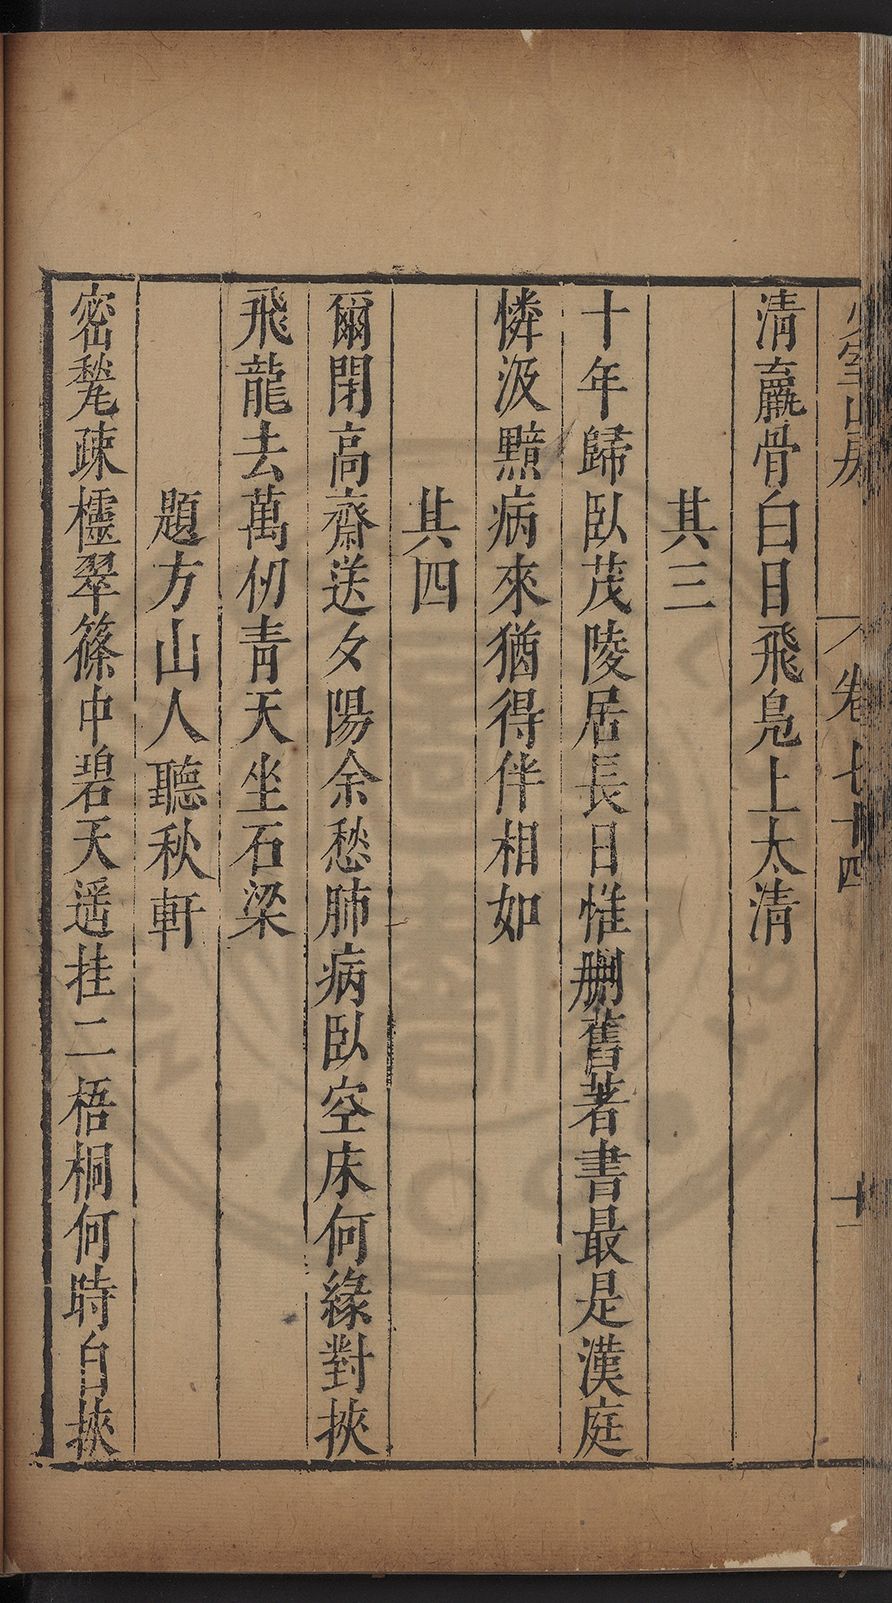 少室山房 卷七十四 十一
清羸骨白日飛凫上太清
其三
十年歸臥茂陵居長日惟刪舊著書最是漢庭
憐汲黯病來猶得伴相如
其四
爾閉高齋送夕陽余愁肺病臥空床何緣對挾
飛龍去萬仞青天坐石梁
題方山人聽秋軒
密甃疎櫺翠篠中碧天遥挂二梧桐何時自挾